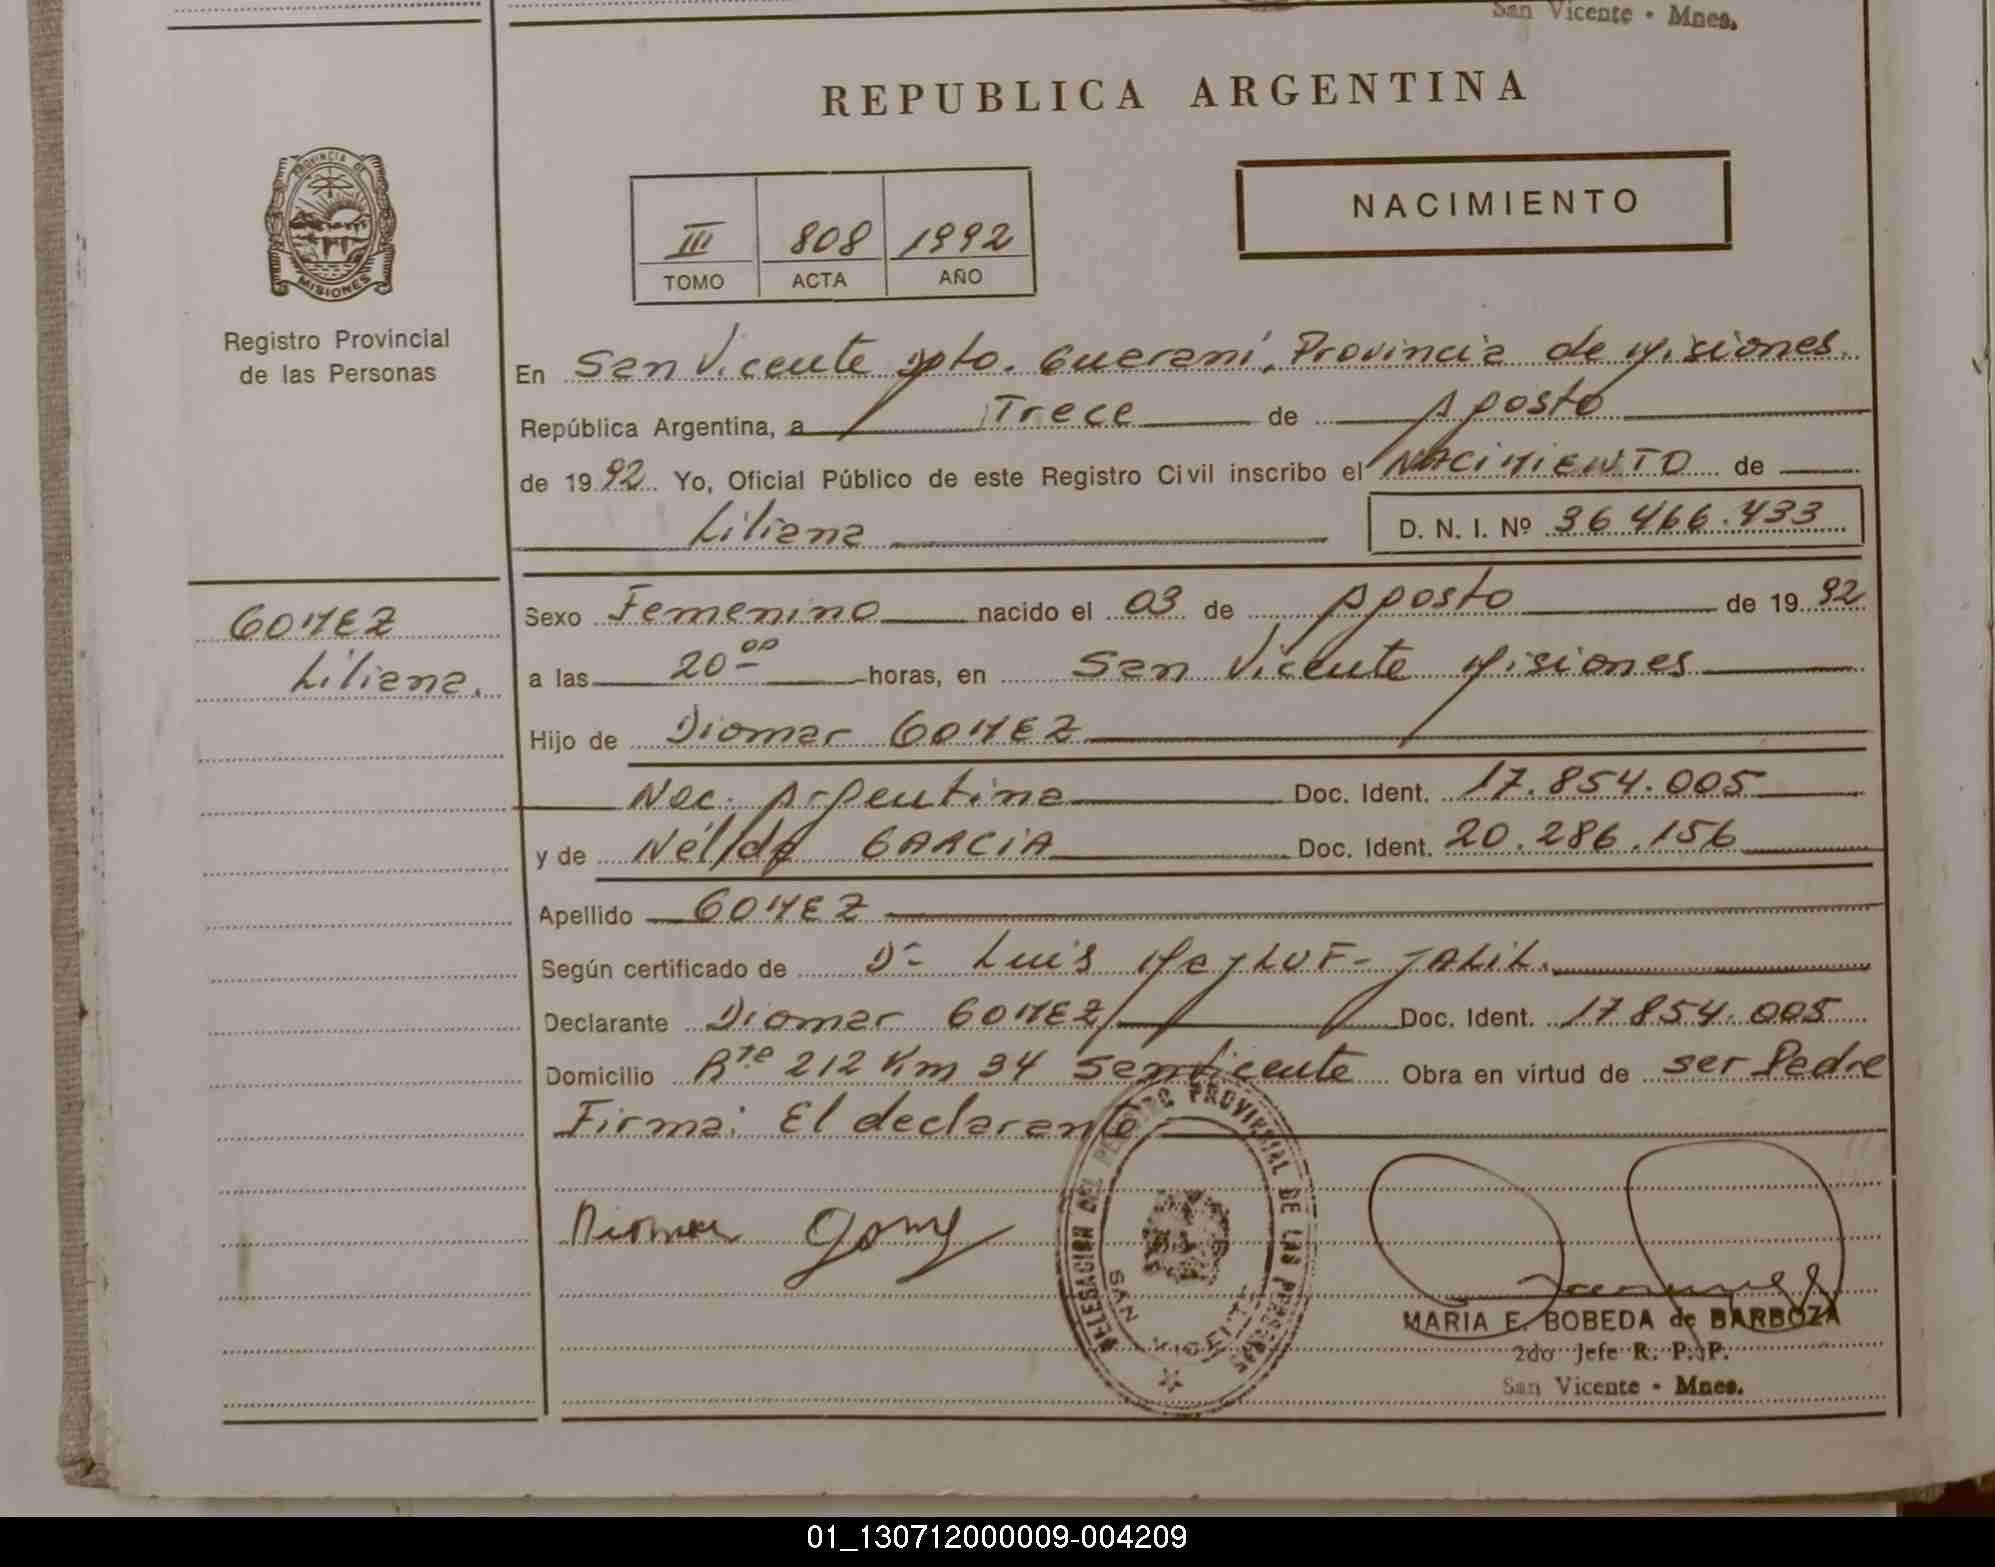 San Vicente - Mnes.
REPUBLICA ARGENTINA
PROVINCIA DE
MISIONES
Registro Provincial
de las Personas
III 808 1992
TOMO ACTA AÑO
NACIMIENTO
En San Vicente Dpto. Guaraní, Provincia de Misiones.
República Argentina, a Trece de Agosto
de 1992. Yo, Oficial Público de este Registro Civil inscribo el NACIMIENTO de
Liliana D. N. I. Nº 36.466.433
GOMEZ
Liliana.
Sexo Femenino nacido el 03 de Agosto de 1992
a las 20 00 horas, en San Vicente Misiones
Hijo de Diomar GOMEZ
Nac. Argentina Doc. Ident. 17.854.005
y de Nélida GARCIA Doc. Ident. 20.286.156
Apellido GOMEZ
Según certificado de Dr Luis JALIL.
Declarante Diomar GOMEZ Doc. Ident. 17.854.005
Domicilio Rte 212 Km 34 San Vicente Obra en virtud de ser Padre
Firma: El declarante
Diomar Gomez
DELEGACION DEL REGISTRO PROVINCIAL DE LAS PERSONAS
SAN VICENTE
MARIA E. BOBEDA de BARBOZA
2do Jefe R. P. P.
San Vicente - Mnes.
01_130712000009-004209